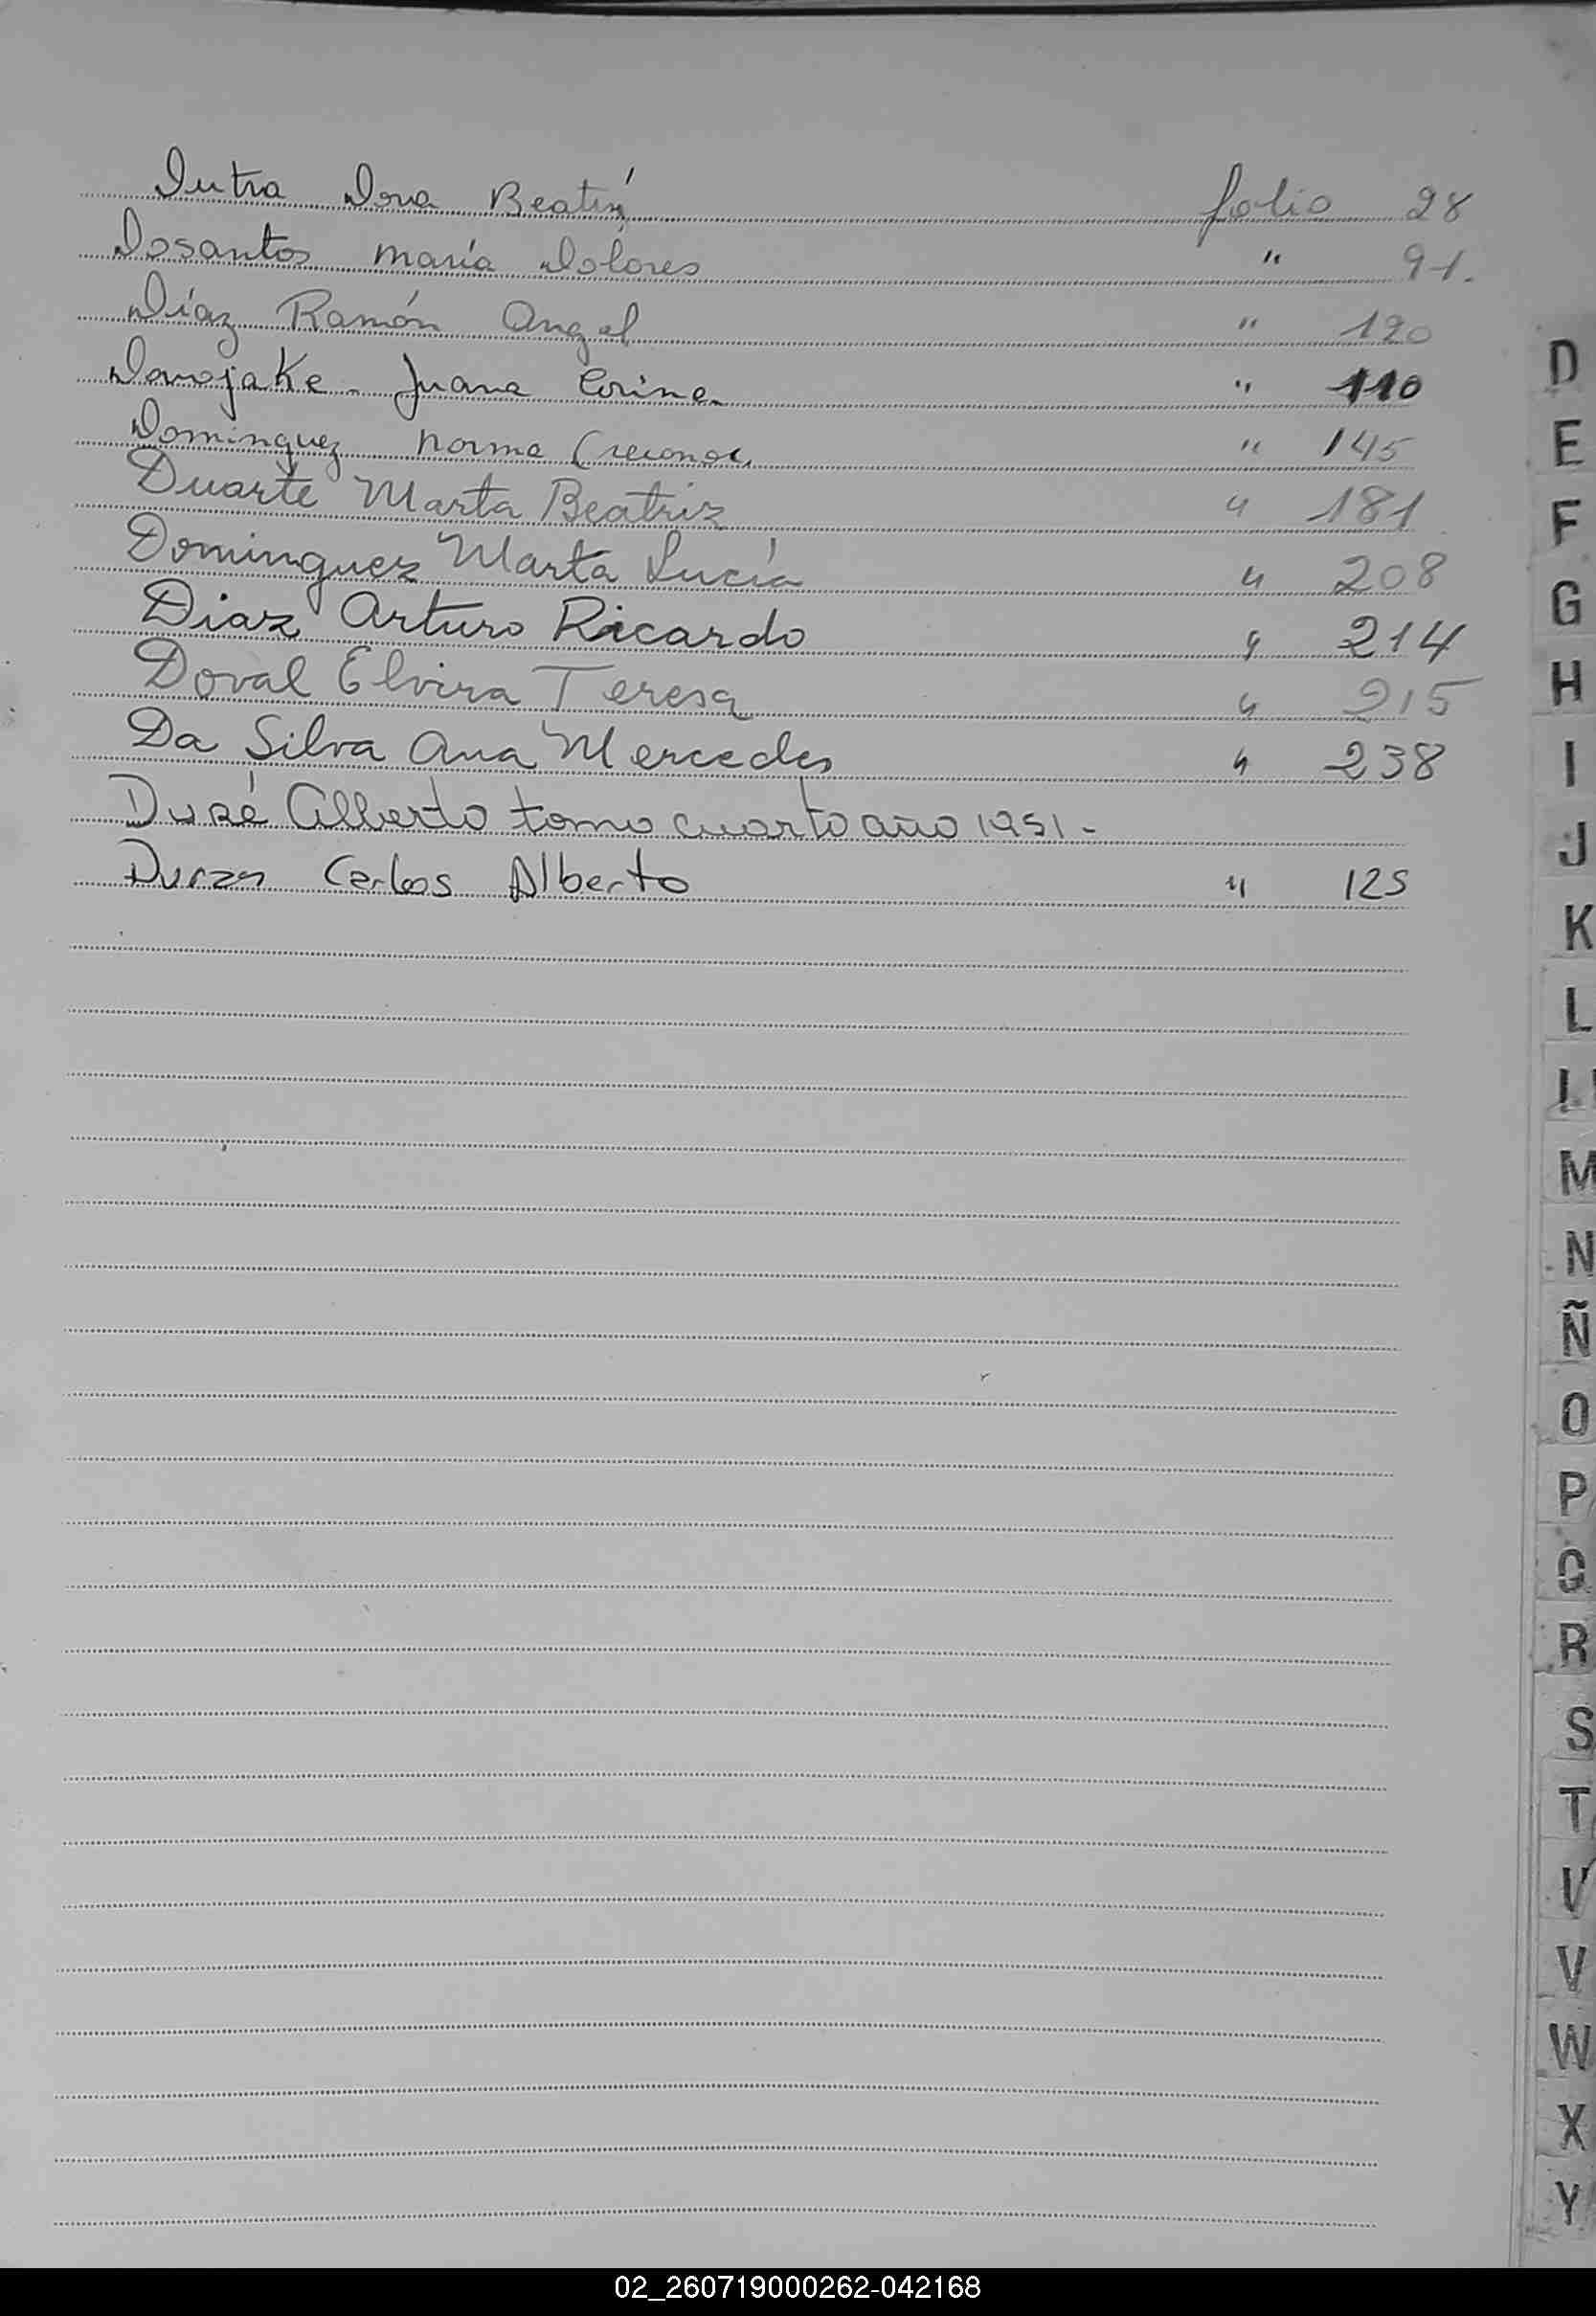 Dutra Dora Beatríz folio 28
Dosantos María Dolores " 91.
Díaz Ramón Angel " 120
Juana Corina " 110
Dominguez Norma " 145
Duarte Marta Beatriz " 181
Dominguez Marta Lucía " 208
Diaz Arturo Ricardo " 214
Doval Elvira Teresa " 215
Da Silva Ana Mercedes " 238
Duré Alberto tomo cuarto año 1951-
Duran Carlos Alberto " 125
D
E
F
G
H
I
J
K
L
M
N
Ñ
O
P
Q
R
S
T
V
W
X
Y
02_260719000262-042168